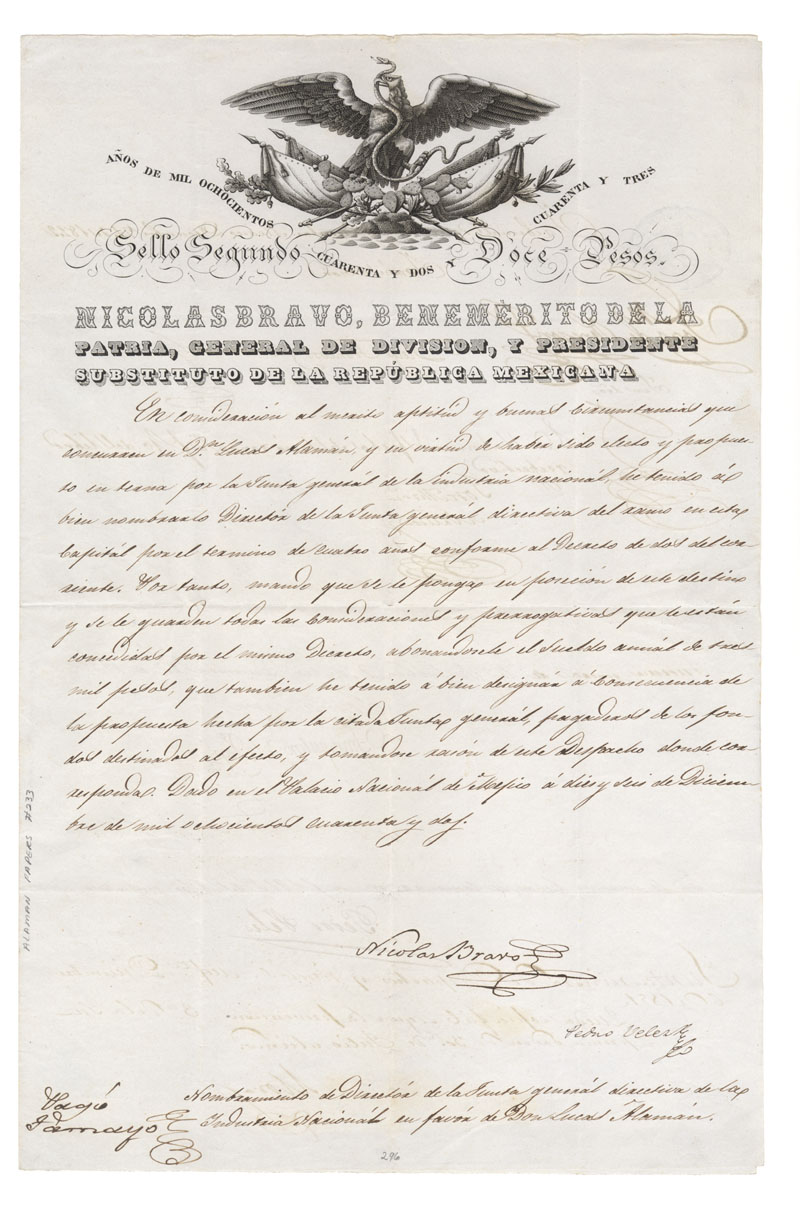 AÑOS DE MIL OCHOCIENTOS
CUARENTA Y TRES
Sello Segundo
CUARENTA Y DOS
Doce Pesos.
NICOLAS BRAVO, BENEMÉRITO DE LA
PATRIA, GENERAL DE DIVISION, Y PRESIDENTE
SUBSTITUTO DE LA REPÚBLICA MEXICANA
En consideración al merito aptitud y buenas circunstancias que
concurren en Dn. Lucas Alamán, y en virtud de haber sido electo y propues-
to en terna por la Junta general de la industria nacional, he tenido á
bien nombrarlo Directór de la Junta general directiva del ramo en esta
Capitál por el termino de cuatro años conforme al Decreto de dos del cor-
riente. Por tanto, mando que se le ponga en posecion de este destino
y se le guarden todas las consideraciones y prerrogativas que le están
concedidas por el mismo Decreto, abonandosele el sueldo annál de tres
mil pesos, que tambien he tenido á bien designár á consecuencia de
la propuesta hecha por la citada Junta general, pagaderos de los fon-
dos destinados al efecto, y tomandose razón de este Despacho donde cor-
responda. Dado en el Palacio Nacionál de Mejico á diez y seis de Diciem-
bre de mil ochocientos cuarenta y dos.
Nicolas Bravo
Pedro Velez
Nombramiento de Directór de la Junta general directiva de la
Industria Nacionál en favór de Don Lucas Alamán.
Pagó
Tamayo
ALAMAN PAPERS
296